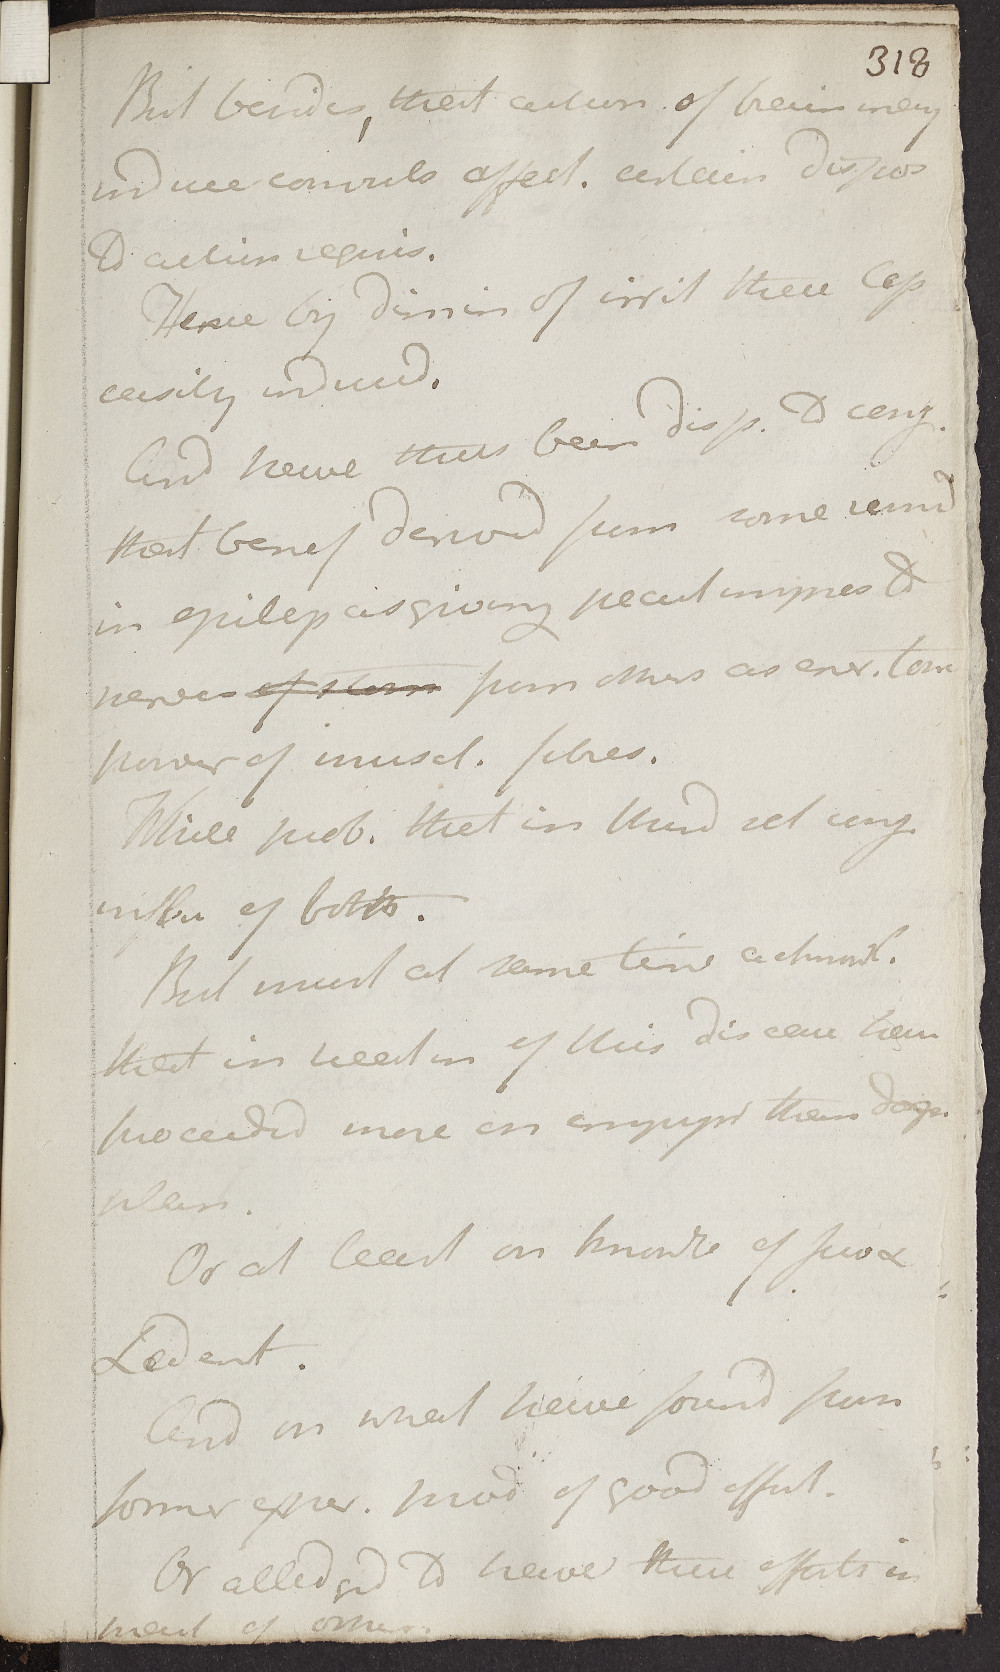 318
But besides, that action of brain may
induce convuls affect. certain dispos
to action requis.
Hence by dimin of irrit these less
easily induced.
And have thus been disp. to conj.
that benef derived from some remed
in epilep as giving pecul impres to
nerves of stom from others as ener. tone
power of muscl. fibres.
While prob. that in third set conj.
influ of both.
But must at same time acknowl.
that in treatm of this disease have
proceeded more on empyr than dogm.
plan.
Or at least on knowle of juva &
Ledent.
And on what have found from
former exper. prod of good effect.
Or alledged to have these effects in
of others.